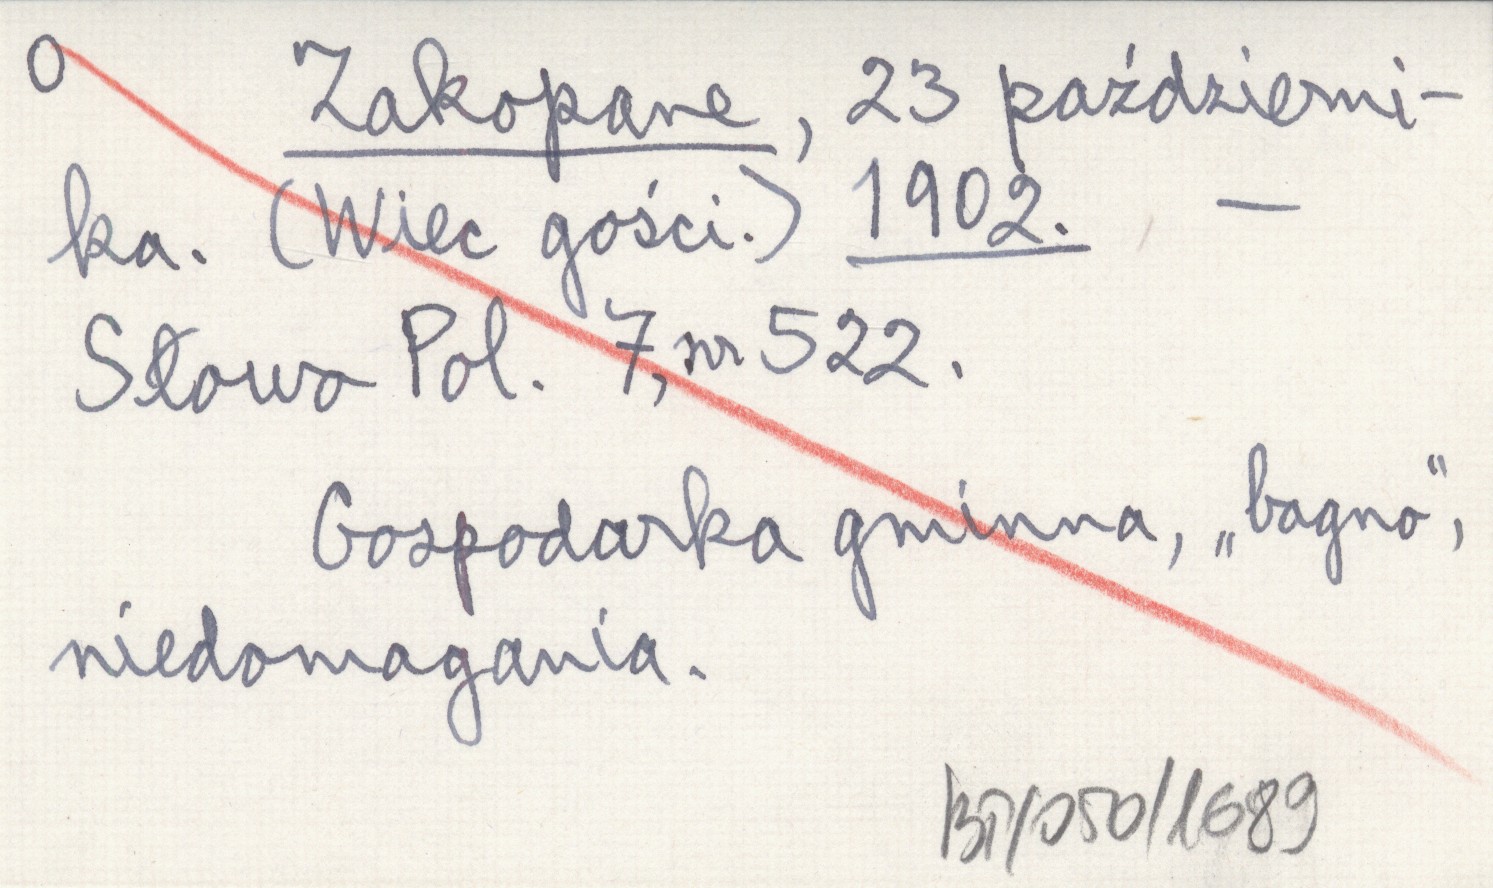 O Zakopane, 23 październi-
ka. (Wiec gości.) 1902. —
Słowo Pol. 7, nr 522.
Gospodarka gminna, „bagno",
niedomagania.
BT/050/1689